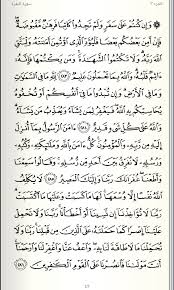 الجزء ٣ سورة البقرة
۞ وَإِن كُنتُمْ عَلَىٰ سَفَرٍ وَلَمْ تَجِدُوا۟ كَاتِبًا فَرِهَـٰنٌ مَّقْبُوضَةٌ
فَإِنْ أَمِنَ بَعْضُكُم بَعْضًا فَلْيُؤَدِّ ٱلَّذِى ٱؤْتُمِنَ أَمَـٰنَتَهُۥ وَلْيَتَّقِ
ٱللَّهَ رَبَّهُۥ وَلَا تَكْتُمُوا۟ ٱلشَّهَـٰدَةَ وَمَن يَكْتُمْهَا فَإِنَّهُۥٓ
ءَاثِمٌ قَلْبُهُۥ وَٱللَّهُ بِمَا تَعْمَلُونَ عَلِيمٌ ٢٨٣ لِّلَّهِ مَا فِى ٱلسَّمَـٰوَٰتِ
وَمَا فِى ٱلْأَرْضِ وَإِن تُبْدُوا۟ مَا فِىٓ أَنفُسِكُمْ أَوْ تُخْفُوهُ
يُحَاسِبْكُم بِهِ ٱللَّهُ فَيَغْفِرُ لِمَن يَشَآءُ وَيُعَذِّبُ مَن يَشَآءُ
وَٱللَّهُ عَلَىٰ كُلِّ شَىْءٍ قَدِيرٌ ٢٨٤ ءَامَنَ ٱلرَّسُولُ بِمَآ أُنزِلَ
إِلَيْهِ مِن رَّبِّهِۦ وَٱلْمُؤْمِنُونَ كُلٌّ ءَامَنَ بِٱللَّهِ وَمَلَـٰٓئِكَتِهِۦ وَكُتُبِهِۦ
وَرُسُلِهِۦ لَا نُفَرِّقُ بَيْنَ أَحَدٍ مِّن رُّسُلِهِۦ وَقَالُوا۟ سَمِعْنَا
وَأَطَعْنَا غُفْرَانَكَ رَبَّنَا وَإِلَيْكَ ٱلْمَصِيرُ ٢٨٥ لَا يُكَلِّفُ
ٱللَّهُ نَفْسًا إِلَّا وُسْعَهَا لَهَا مَا كَسَبَتْ وَعَلَيْهَا مَا ٱكْتَسَبَتْ
رَبَّنَا لَا تُؤَاخِذْنَآ إِن نَّسِينَآ أَوْ أَخْطَأْنَا رَبَّنَا وَلَا تَحْمِلْ
عَلَيْنَآ إِصْرًا كَمَا حَمَلْتَهُۥ عَلَى ٱلَّذِينَ مِن قَبْلِنَا رَبَّنَا وَلَا
تُحَمِّلْنَا مَا لَا طَاقَةَ لَنَا بِهِۦ وَٱعْفُ عَنَّا وَٱغْفِرْ لَنَا وَٱرْحَمْنَآ
أَنتَ مَوْلَىٰنَا فَٱنصُرْنَا عَلَى ٱلْقَوْمِ ٱلْكَـٰفِرِينَ ٢٨٦
٤٩